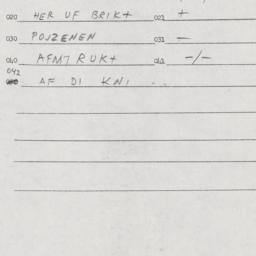 020 HER UF BRIKT 021 +
030 POJZENEN 031 —
040 AFM7 RUKT 041 -/-
042 AF DI KNI